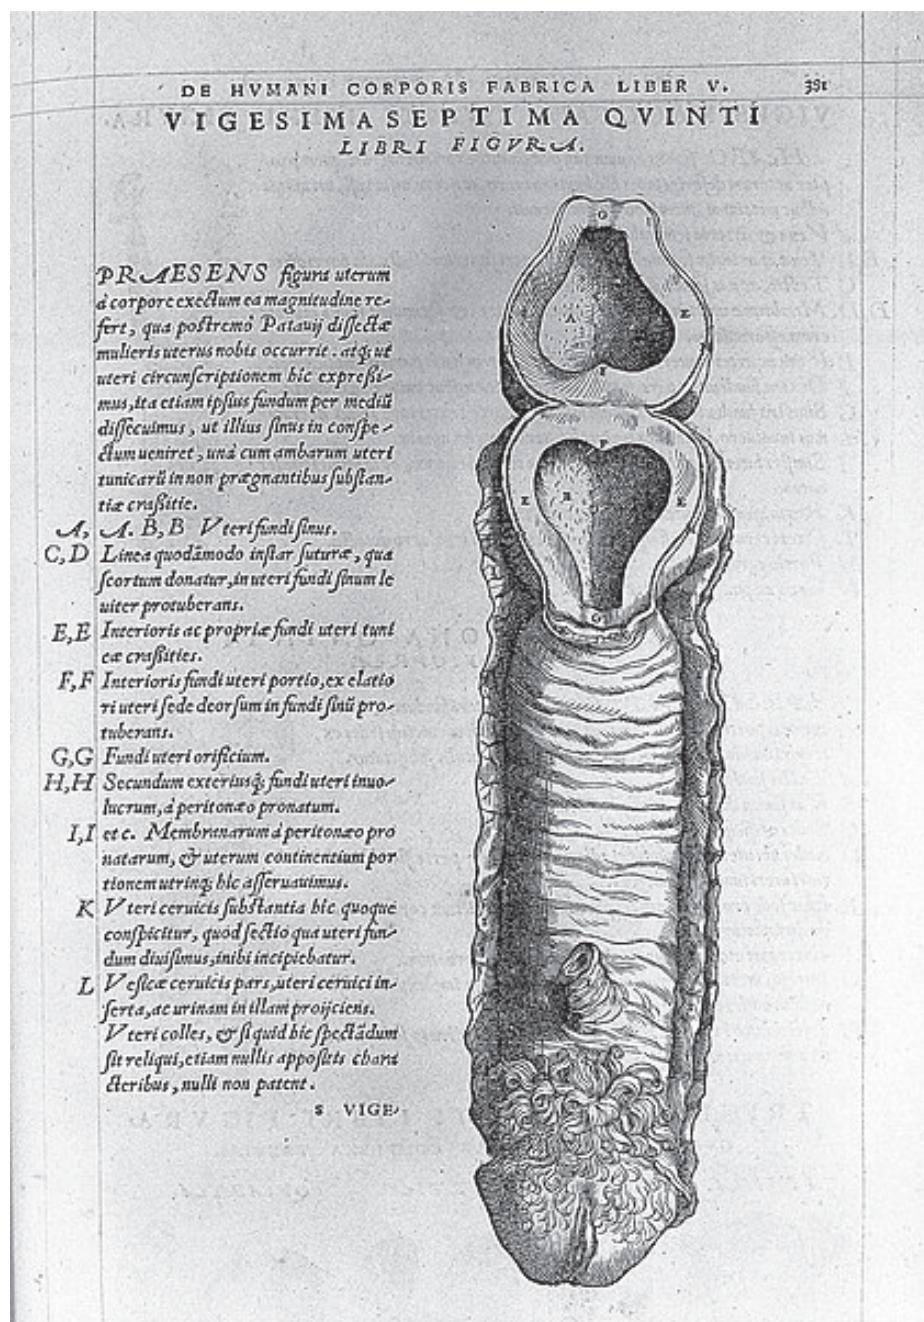 DE HVMANI CORPORIS FABRICA LIBER V. 381
VIGESIMASEPTIMA QVINTI
LIBRI FIGVRA.
PRAESENS figura uterum
à corpore exectum ea magnitudine re-
fert, qua postremò Patauij dissectæ
mulieris uterus nobis occurrit. atq; ut
uteri circunscriptionem hic expressi-
mus, ita etiam ipsius fundum per mediũ
dissecuimus, ut illius sinus in conspe-
ctum ueniret, unà cum ambarum uteri
tunicarũ in non prægnantibus substan-
tiæ crassitie.
A, A. B, B Vteri fundi sinus.
C, D Linea quodãmodo instar suturæ, qua
scortum donatur, in uteri fundi sinum le
uiter protuberans.
E, E Interioris ac propriæ fundi uteri tuni
cæ crassities.
F, F Interioris fundi uteri portio, ex elatio
ri uteri sede deorsum in fundi sinũ pro-
tuberans.
G, G Fundi uteri orificium.
H, H Secundum exteriusq; fundi uteri inuo-
lucrum, à peritonæo pronatum.
I, I et c. Membranarum à peritonæo pro
natarum, & uterum continentium por
tionem utrinq; hic asseruauimus.
K Vteri ceruicis substantia hic quoque
conspicitur, quòd sectio qua uteri fun-
dum diuisimus, inibi incipiebatur.
L Vesicæ ceruicis pars, uteri ceruici in-
serta, ac urinam in illam proijciens.
Vteri colles, & si quid hic spectãdum
sit reliqui, etiam nullis appositis chara
cteribus, nulli non patent.
s VIGE-
G
A
E
F
F
E
B
E
G